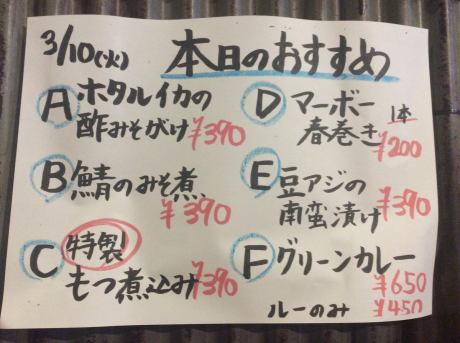 3/10(火) 本日のおすすめ
A ホタルイカの
酢みそがけ ¥390
B 鯖のみそ煮
¥390
C 特製
もつ煮込み ¥390
D マーボー
春巻き 1本
¥200
E 豆アジの
南蛮漬け ¥390
F グリーンカレー
¥650
ルーのみ ¥450